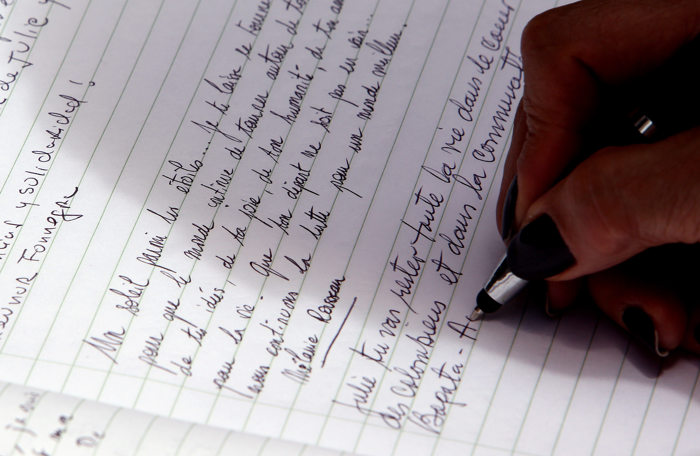 de Julie y
y solidaridad!
Un soleil parmi les étoiles... je te laisse
pour que le monde continue de tourner autour de
de tes idées, de ta joie, de ton humanité, de ton
pour la vie. Que ton départ ne soit pas en vain...
nous continuons la lutte pour un monde meilleur.
Mélanie
Julie tu vas rester toute ta vie dans le coeur
des colombiens et dans la
Bogota - A